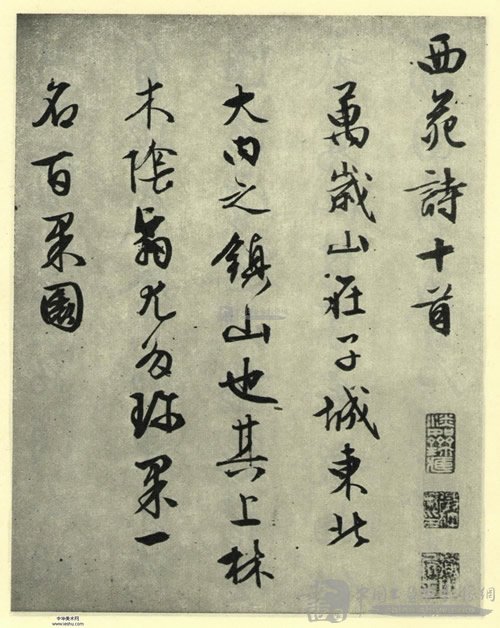 西苑詩十首
萬歲山在子城東北
大內之鎮山也其上林
木陰翳尤多珍果一
名百果園
中华美术网